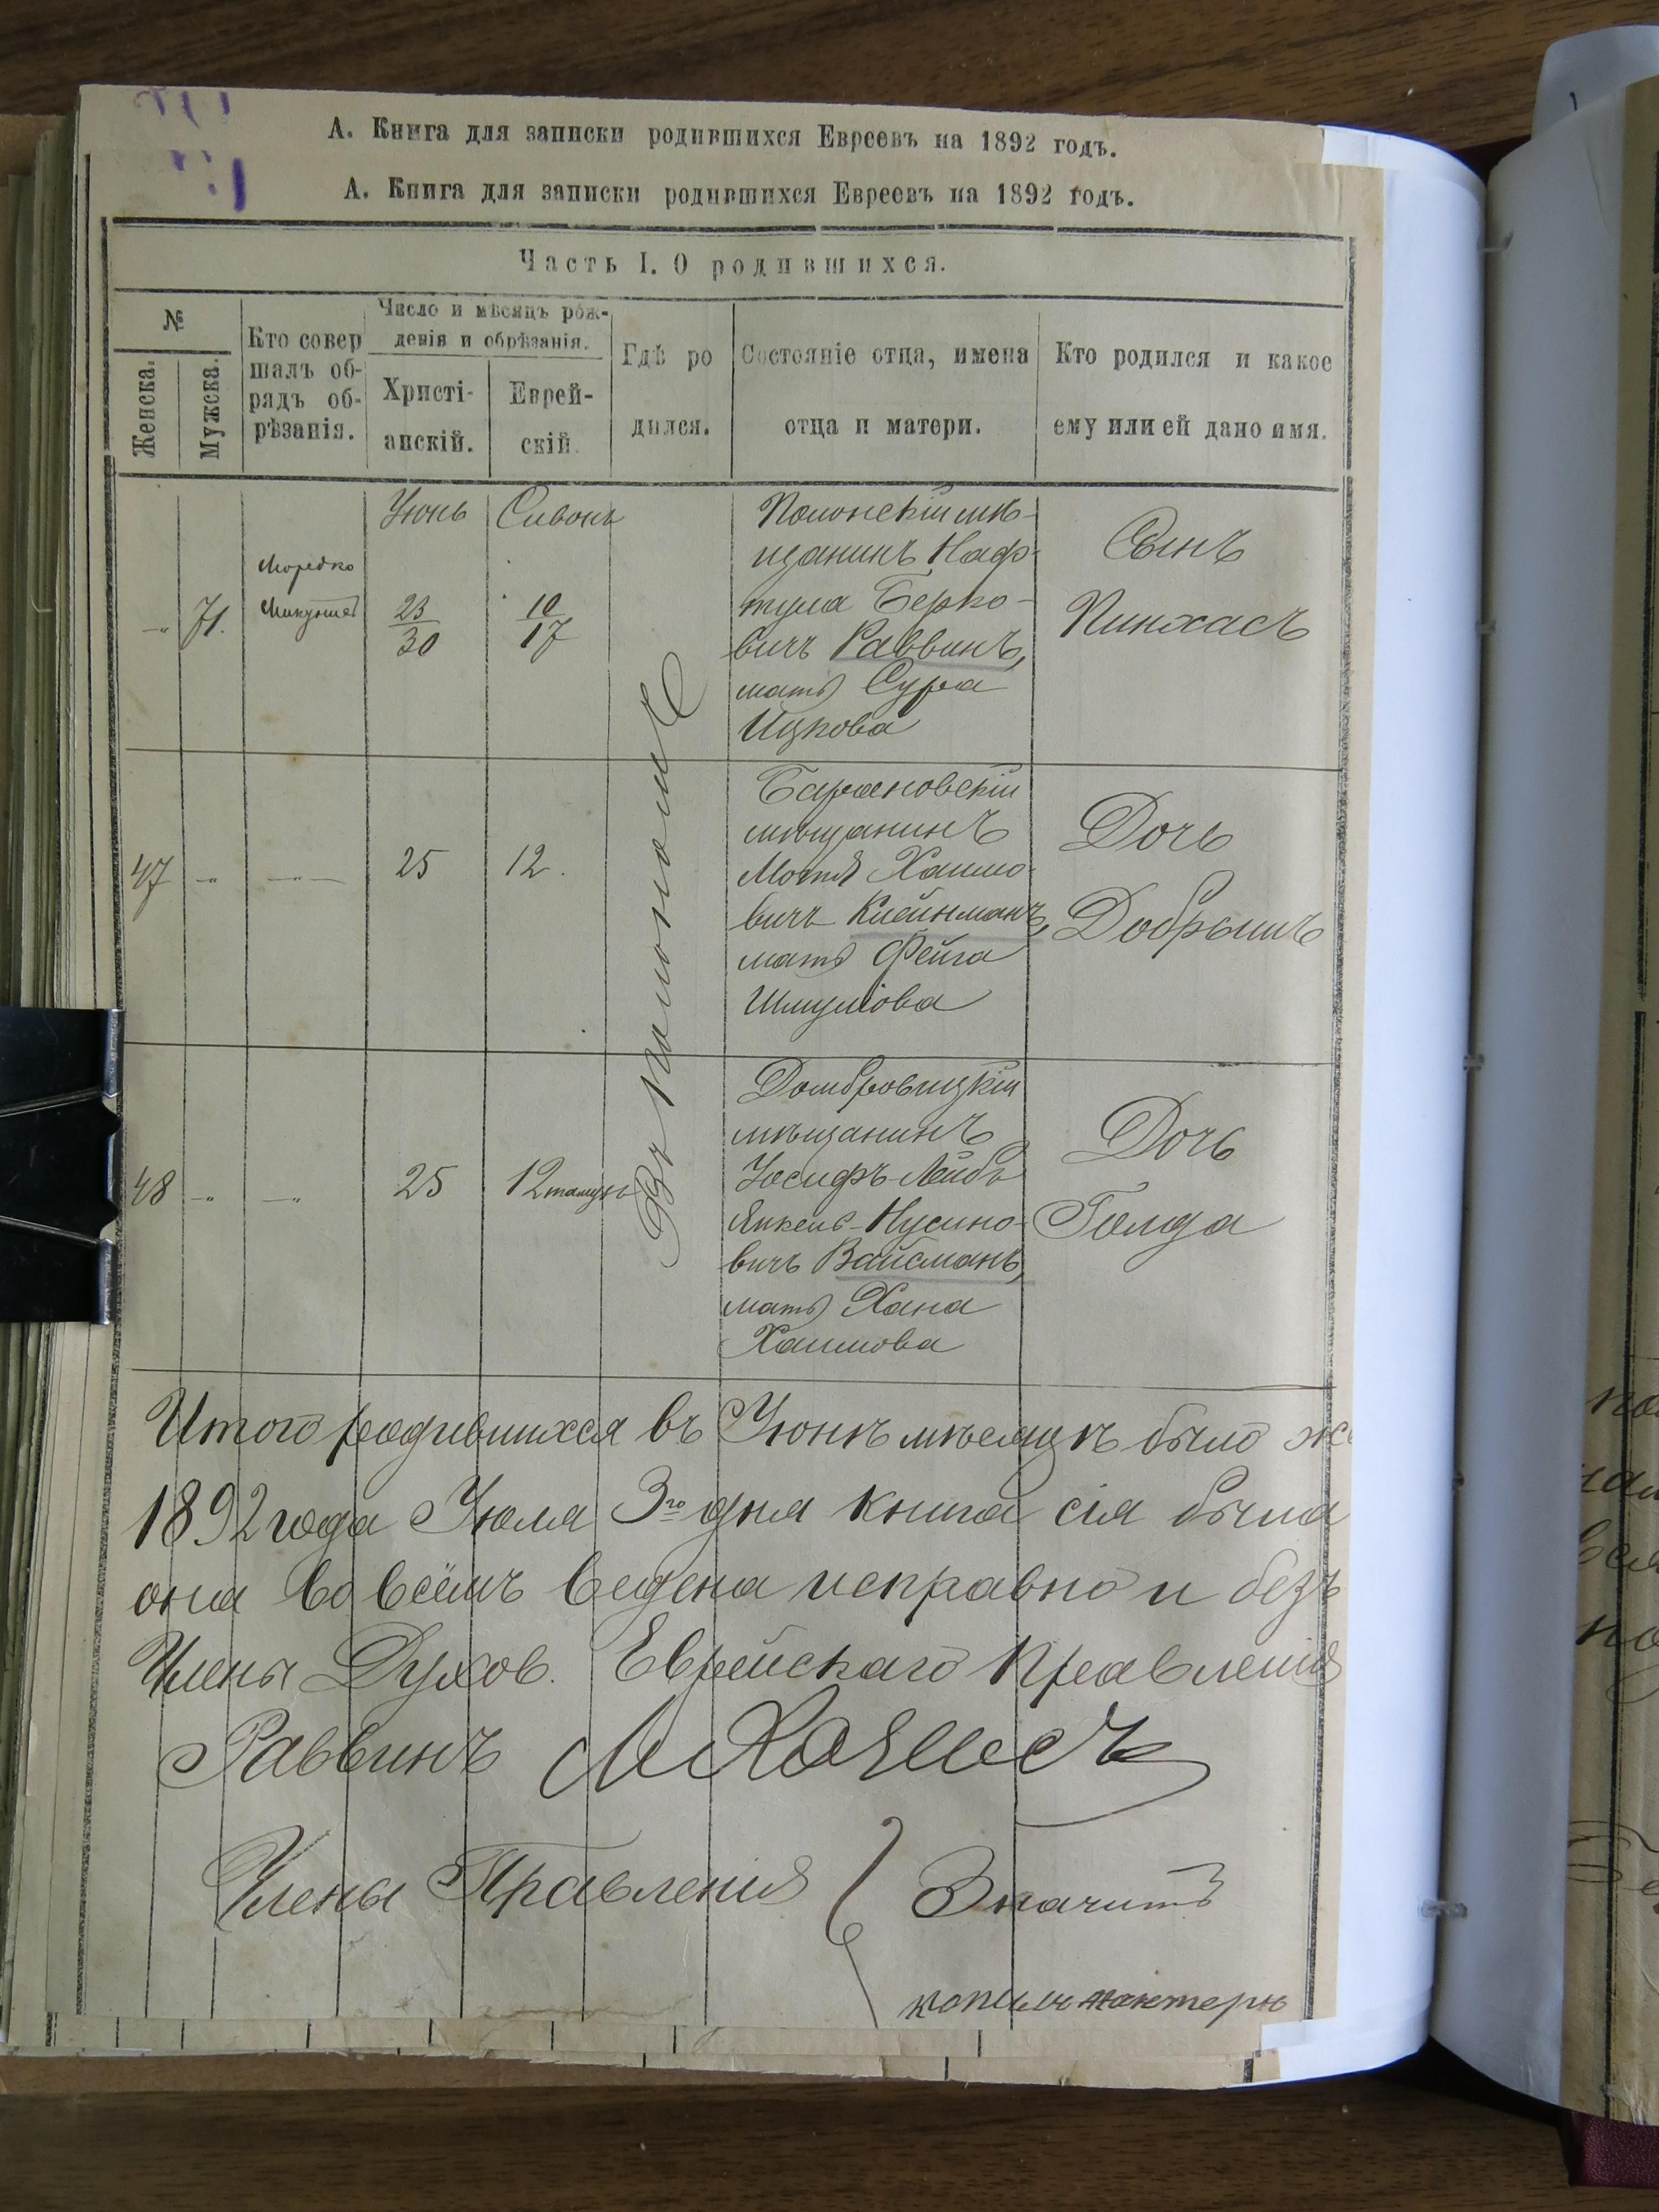 А. Книга для записки родившихся Евреевъ на 1892 годъ.
А. Книга для записки родившихся Евреевъ на 1892 годъ.
Часть I. О родившихся.
№
Женска.
Мужска.
Кто совер
шалъ об-
рядъ об-
рѣзанія.
Число и мѣсяцъ рож-
денія и обрѣзанія.
Христі-
анскій.
Еврей-
скій.
Гдѣ ро
дился.
Состояніе отца, имена
отца и матери.
Кто родился и какое
ему или ей дано имя.
Въ Полономъ
„ 71.
Мордко
Июнь
23
30
Сивонъ
10
17
Полонскій мѣ-
щанинъ Наф-
тула Берко-
вичъ Раввинъ,
мать Сура
Ицкова
Сынъ
Пинхасъ
47 „ „
25
12.
Барановскій
мѣщанинъ
Мотя Хаимо-
вичъ Клейнманъ,
мать Фейга
Шмулiова
Дочь
Добрышъ
48 „ „
25
12 тамузъ
Домбровицкій
мѣщанинъ
Іосифъ-Лейбъ
Янкель-Нусино-
вичъ Вайсманъ,
мать Хана
Хаимова
Дочь
Голда
Итого родившихся въ Июнѣ мѣсяцѣ было
1892 года Июля 3го дня книга сія была
она во всёмъ ведена исправно и безъ
Члены Духов. Еврейскаго Правленія
Раввинъ
Члены Правленія
Значитъ